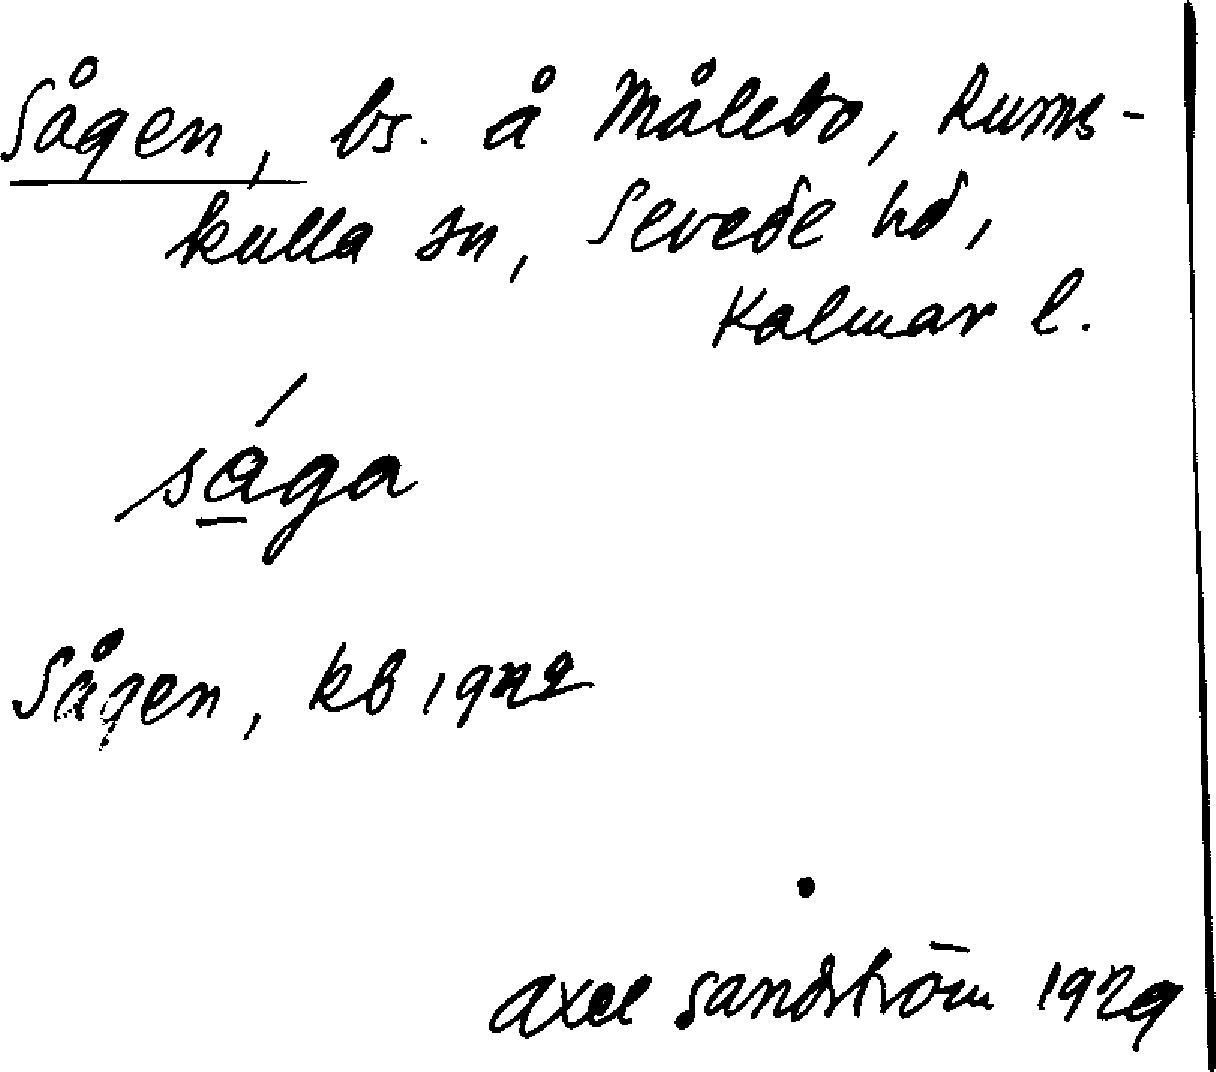 Sågen, bs. å Målebo, Rums-
kulla sn, Sevede hd,
Kalmar l.
sága
Sågen, kb 1929
Axel Sandström 1929